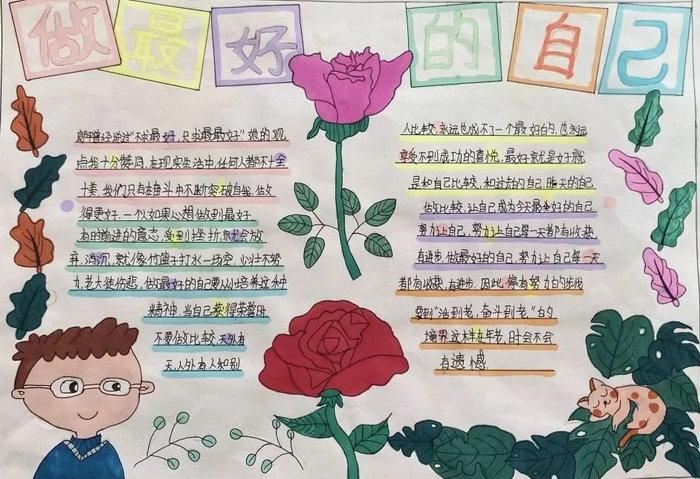 做最好的自己
郎平曾经说过"不求最好,只求最最好"她的观
点我十分赞同,在现实生活中,任何人都不十全
十美,我们只有在奋斗中不断突破自我,做
得更好.一个人如果心想做到最好,
为前进的意志,受到挫折,就会放
弃,消沉,就像竹篮子打水一场空,小壮不努
力,老大徒伤悲,做最好的自己要从小培养这种
精神,当自己获得荣誉时
不要做比较天外有
天,人外有人知别
人比较,永远也成不了一个最好的,也永远
享受不到成功的喜悦,最好就是好就
是和自己比较,和过去的自己,昨天的自己
做比较,让自己成为今天最好的自己
努力让自己,努力让自己每一天都有收获
有进步,做最好的自己,努力让自己每一天
都有收获,有进步,因此,偏有努力的步伐
要到"活到老,奋斗到老"的
境界,这样年老,时会不会
有遗憾